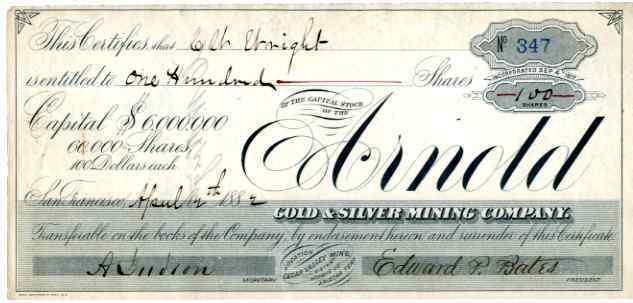 This Certifies, that C W Wright
No 347
is entitled to One Hundred Shares
INCORPORATED SEP 4
100
SHARES
OF THE CAPITAL STOCK
OF THE
Capital $6,000,000
60,000 Shares,
100 Dollars each
Arnold
San Francisco, April 12th 1882
GOLD & SILVER MINING COMPANY.
Transferable on the books of the Company, by endorsement hereon and surrender of this Certificate.
LOCATION
A Judson
SECRETARY
Edward P. Bates
PRESIDENT